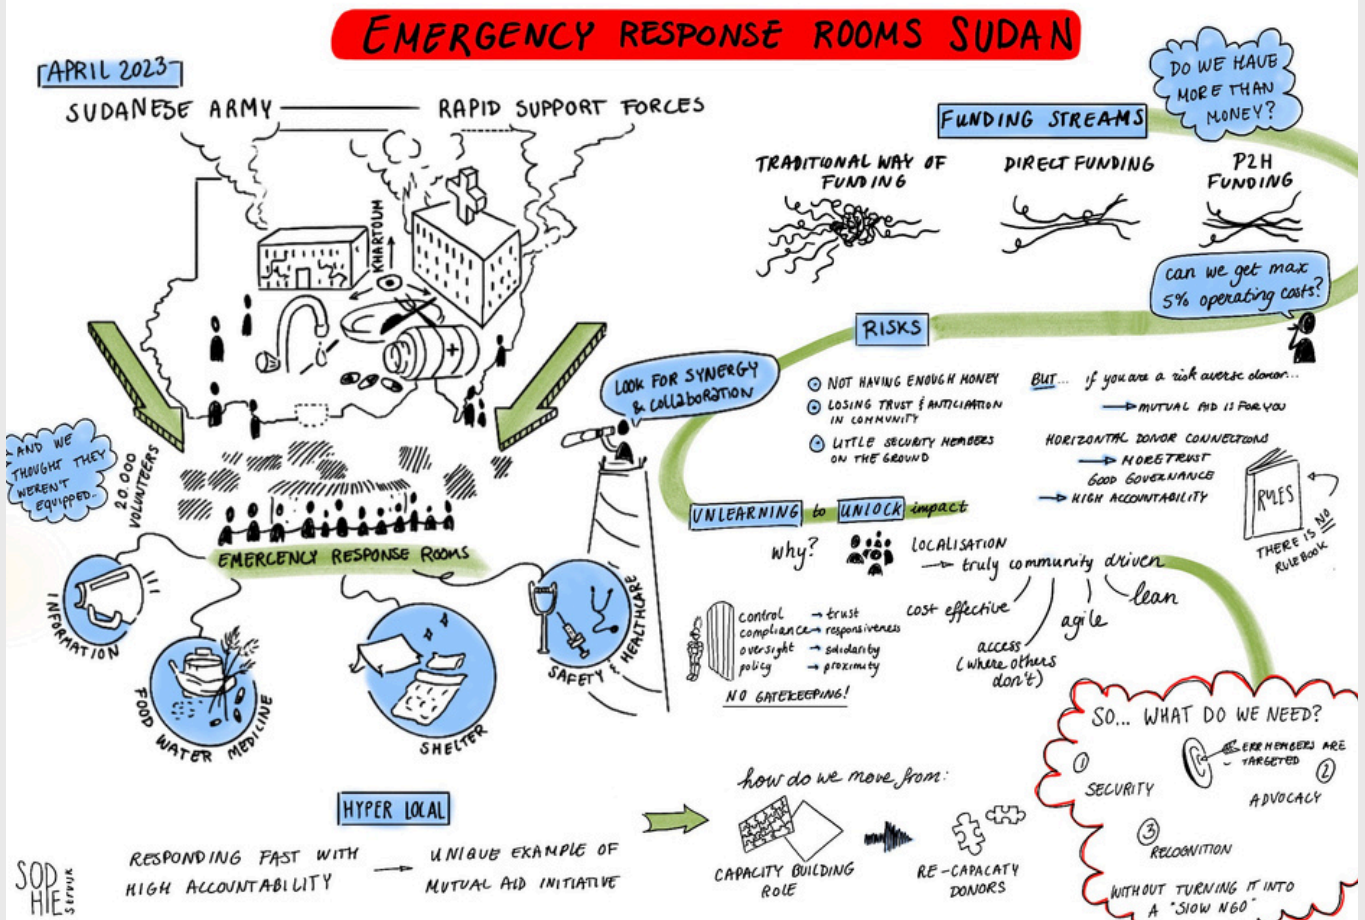 EMERGENCY RESPONSE ROOMS SUDAN
APRIL 2023
SUDANESE ARMY
RAPID SUPPORT FORCES
KHARTOUM
AND WE
THOUGHT THEY
WEREN'T
EQUIPPED..
20.000
VOLUNTEERS
EMERGENCY RESPONSE ROOMS
INFORMATION
FOOD WATER MEDICINE
SHELTER
SAFETY & HEALTHCARE
HYPER LOCAL
RESPONDING FAST WITH
HIGH ACCOUNTABILITY
UNIQUE EXAMPLE OF
MUTUAL AID INITIATIVE
SOPHIE
LOOK FOR SYNERGY
& COLLABORATION
FUNDING STREAMS
DO WE HAVE
MORE THAN
MONEY?
TRADITIONAL WAY OF
FUNDING
DIRECT FUNDING
P2H
FUNDING
can we get max
5% operating costs?
RISKS
NOT HAVING ENOUGH MONEY
LOSING TRUST & ANTICIPATION
IN COMMUNITY
LITTLE SECURITY MEMBERS
ON THE GROUND
BUT... if you are a risk averse donor...
→ MUTUAL AID IS FOR YOU
HORIZONTAL DONOR CONNECTIONS
→ MORE TRUST
GOOD GOVERNANCE
→ HIGH ACCOUNTABILITY
RULES
THERE IS NO
RULEBOOK
UNLEARNING to UNLOCK impact
why?
LOCALISATION
→ truly community driven
cost effective
access
(where others
don't)
agile
lean
control → trust
compliance → responsiveness
oversight → solidarity
policy → proximity
NO GATEKEEPING!
how do we move from:
CAPACITY BUILDING
ROLE
RE-CAPACATY
DONORS
SO... WHAT DO WE NEED?
1
SECURITY
ERR MEMBERS ARE
TARGETED
2
ADVOCACY
3
RECOGNITION
WITHOUT TURNING IT INTO
A "SLOW NGO"